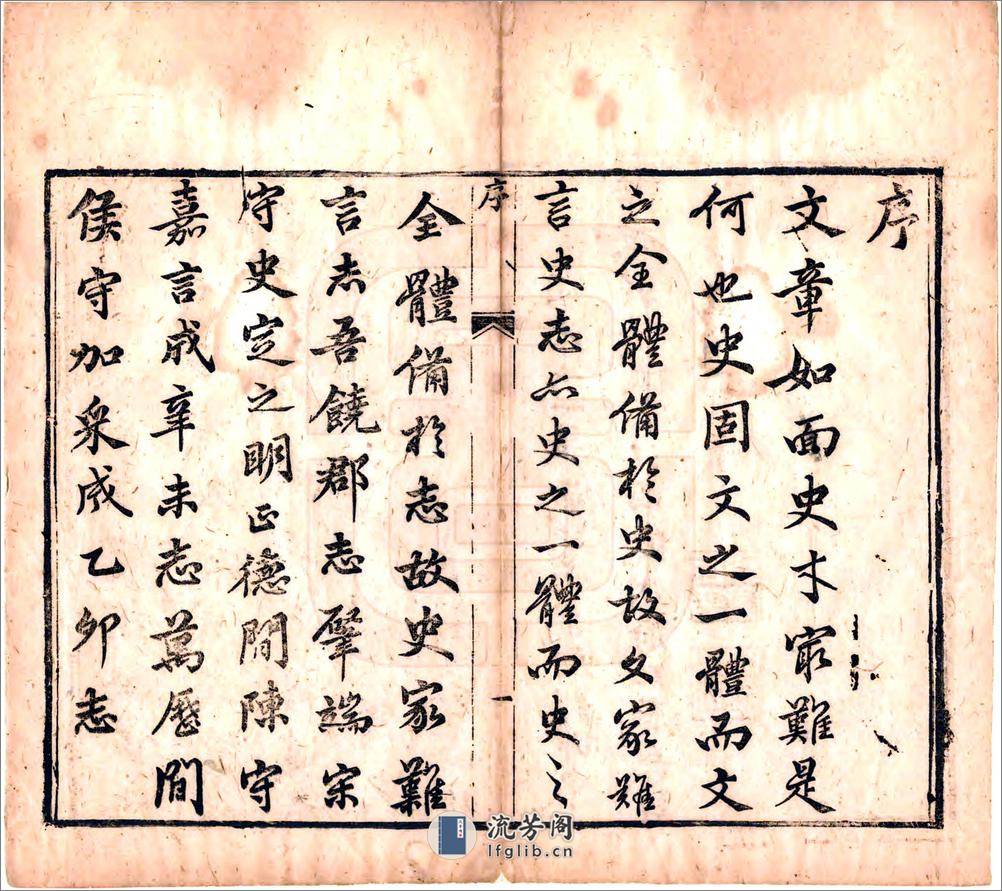 序
文章如面史才寂難是
何也史固文之一體而文
之全體備於史故文家難
言史志亦史之一體而史之
序
一
全體備於志故史家難
言志吾饒郡志肇端宋
守史定之明正德間陳守
嘉言成辛未志萬歷間
侯守加采成乙卯志
流芳阁
lfglib.cn